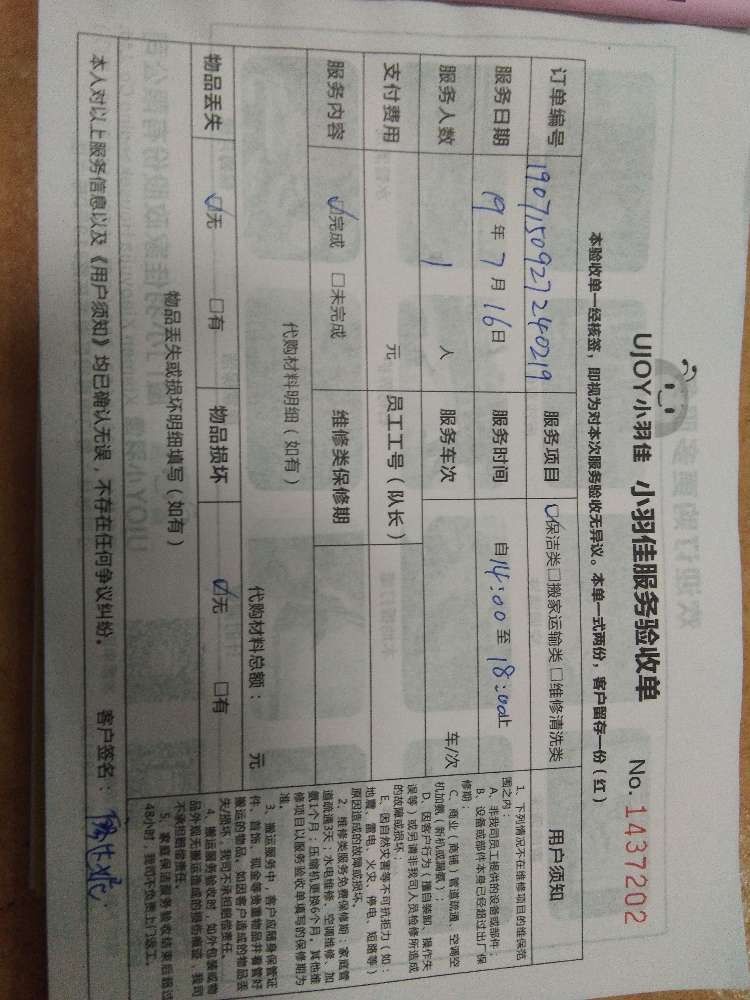 UJOY小羽佳 小羽佳服务验收单 No.1437202
本验收单一经核签，即视为对本次服务验收无异议。本单一式两份，客户留存一份（红）
订单编号 1907150927240219 服务项目 ☑保洁类□搬家运输类□维修清洗类
服务日期 19年7月16日 服务时间 自14:00至18:00止
服务人数 1人 服务车次 车/次
支付费用 元 员工工号（队长）
服务内容 ☑完成 □未完成 维修类保修期
代购材料明细（如有）
代购材料总额： 元
物品丢失 ☑无 □有 物品损坏 ☑无 □有
物品丢失或损坏明细填写（如有）
本人对以上服务信息以及《用户须知》均已确认无误，不存在任何争议纠纷。 客户签名：
用户须知
1、下列情况不在维修项目的维保范
围之内：
A、非我司员工提供的设备或部件；
B、设备或部件本身已经超过出厂保
修期；
C、商业（商铺）管道疏通、空调空
机加氨（新机或漏氨）；
D、因客户行为（擅自装卸、操作失
误等）或另请非我司人员检修所造成
的故障或损坏；
E、因自然灾害等不可抗拒力（如：
地震、雷电、火灾、停电、短路等）
原因造成的故障或损坏。
2、维修类服务免费保修期：家庭管
道疏通3天；水电维修、空调维修、加
氨1个月；压缩机更换6个月。其他维
修项目以服务验收单填写的保修期为
准。
3、搬运服务中，客户应随身保管证
件、首饰、现金等贵重物品并看管好
搬运的物品，如因客户造成的物品丢
失/损坏，我司不承担赔偿责任。
4、搬运服务验收时，如外包装或物
品外观无搬运造成的损伤痕迹，我司
不承担赔偿责任。
5、家庭保洁服务验收结束后超过
48小时，我司不负责上门返工。